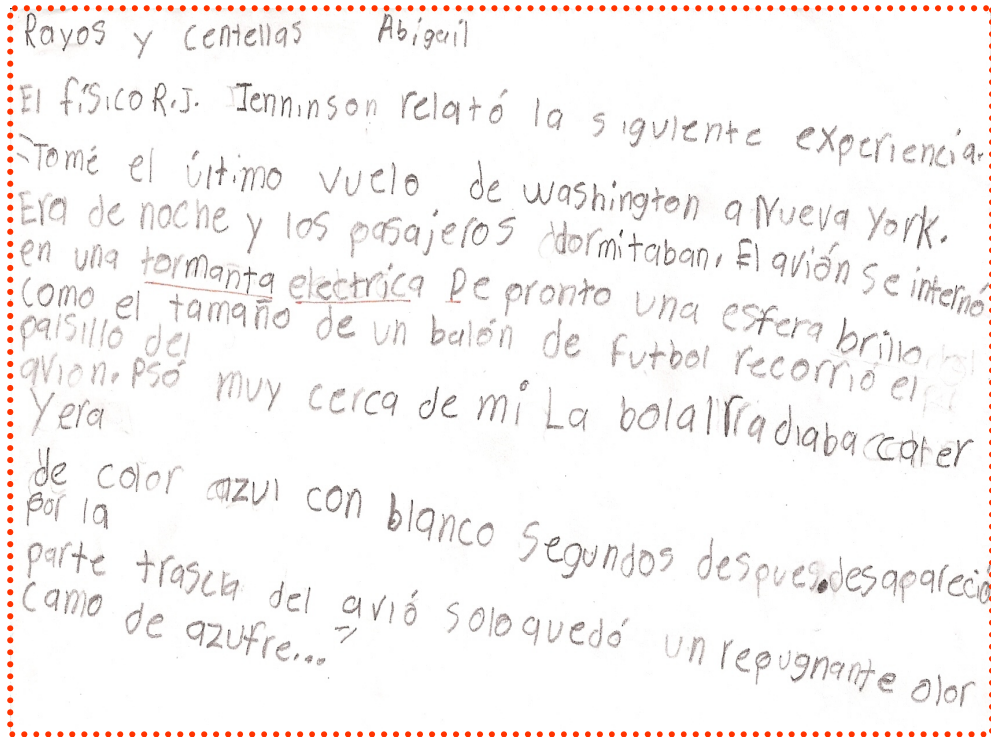 Rayos y centellas Abigail
El físico R.J. Jenninson relató la siguiente experiencia.
-Tomé el último vuelo de washington a Nueva York.
Era de noche y los pasajeros ddormitaban. El avión se internó
en una tormanta electtrica De pronto una esfera brillo
como el tamaño de un balón de futbol recorrió el
palsillo del
avion. Psó muy cerca de mi La bola Irradiaba
Y era
de color azul con blanco segundos despues. desapareció
por la
parte del avió solo quedó un repugnante olor
camo de azufre...”